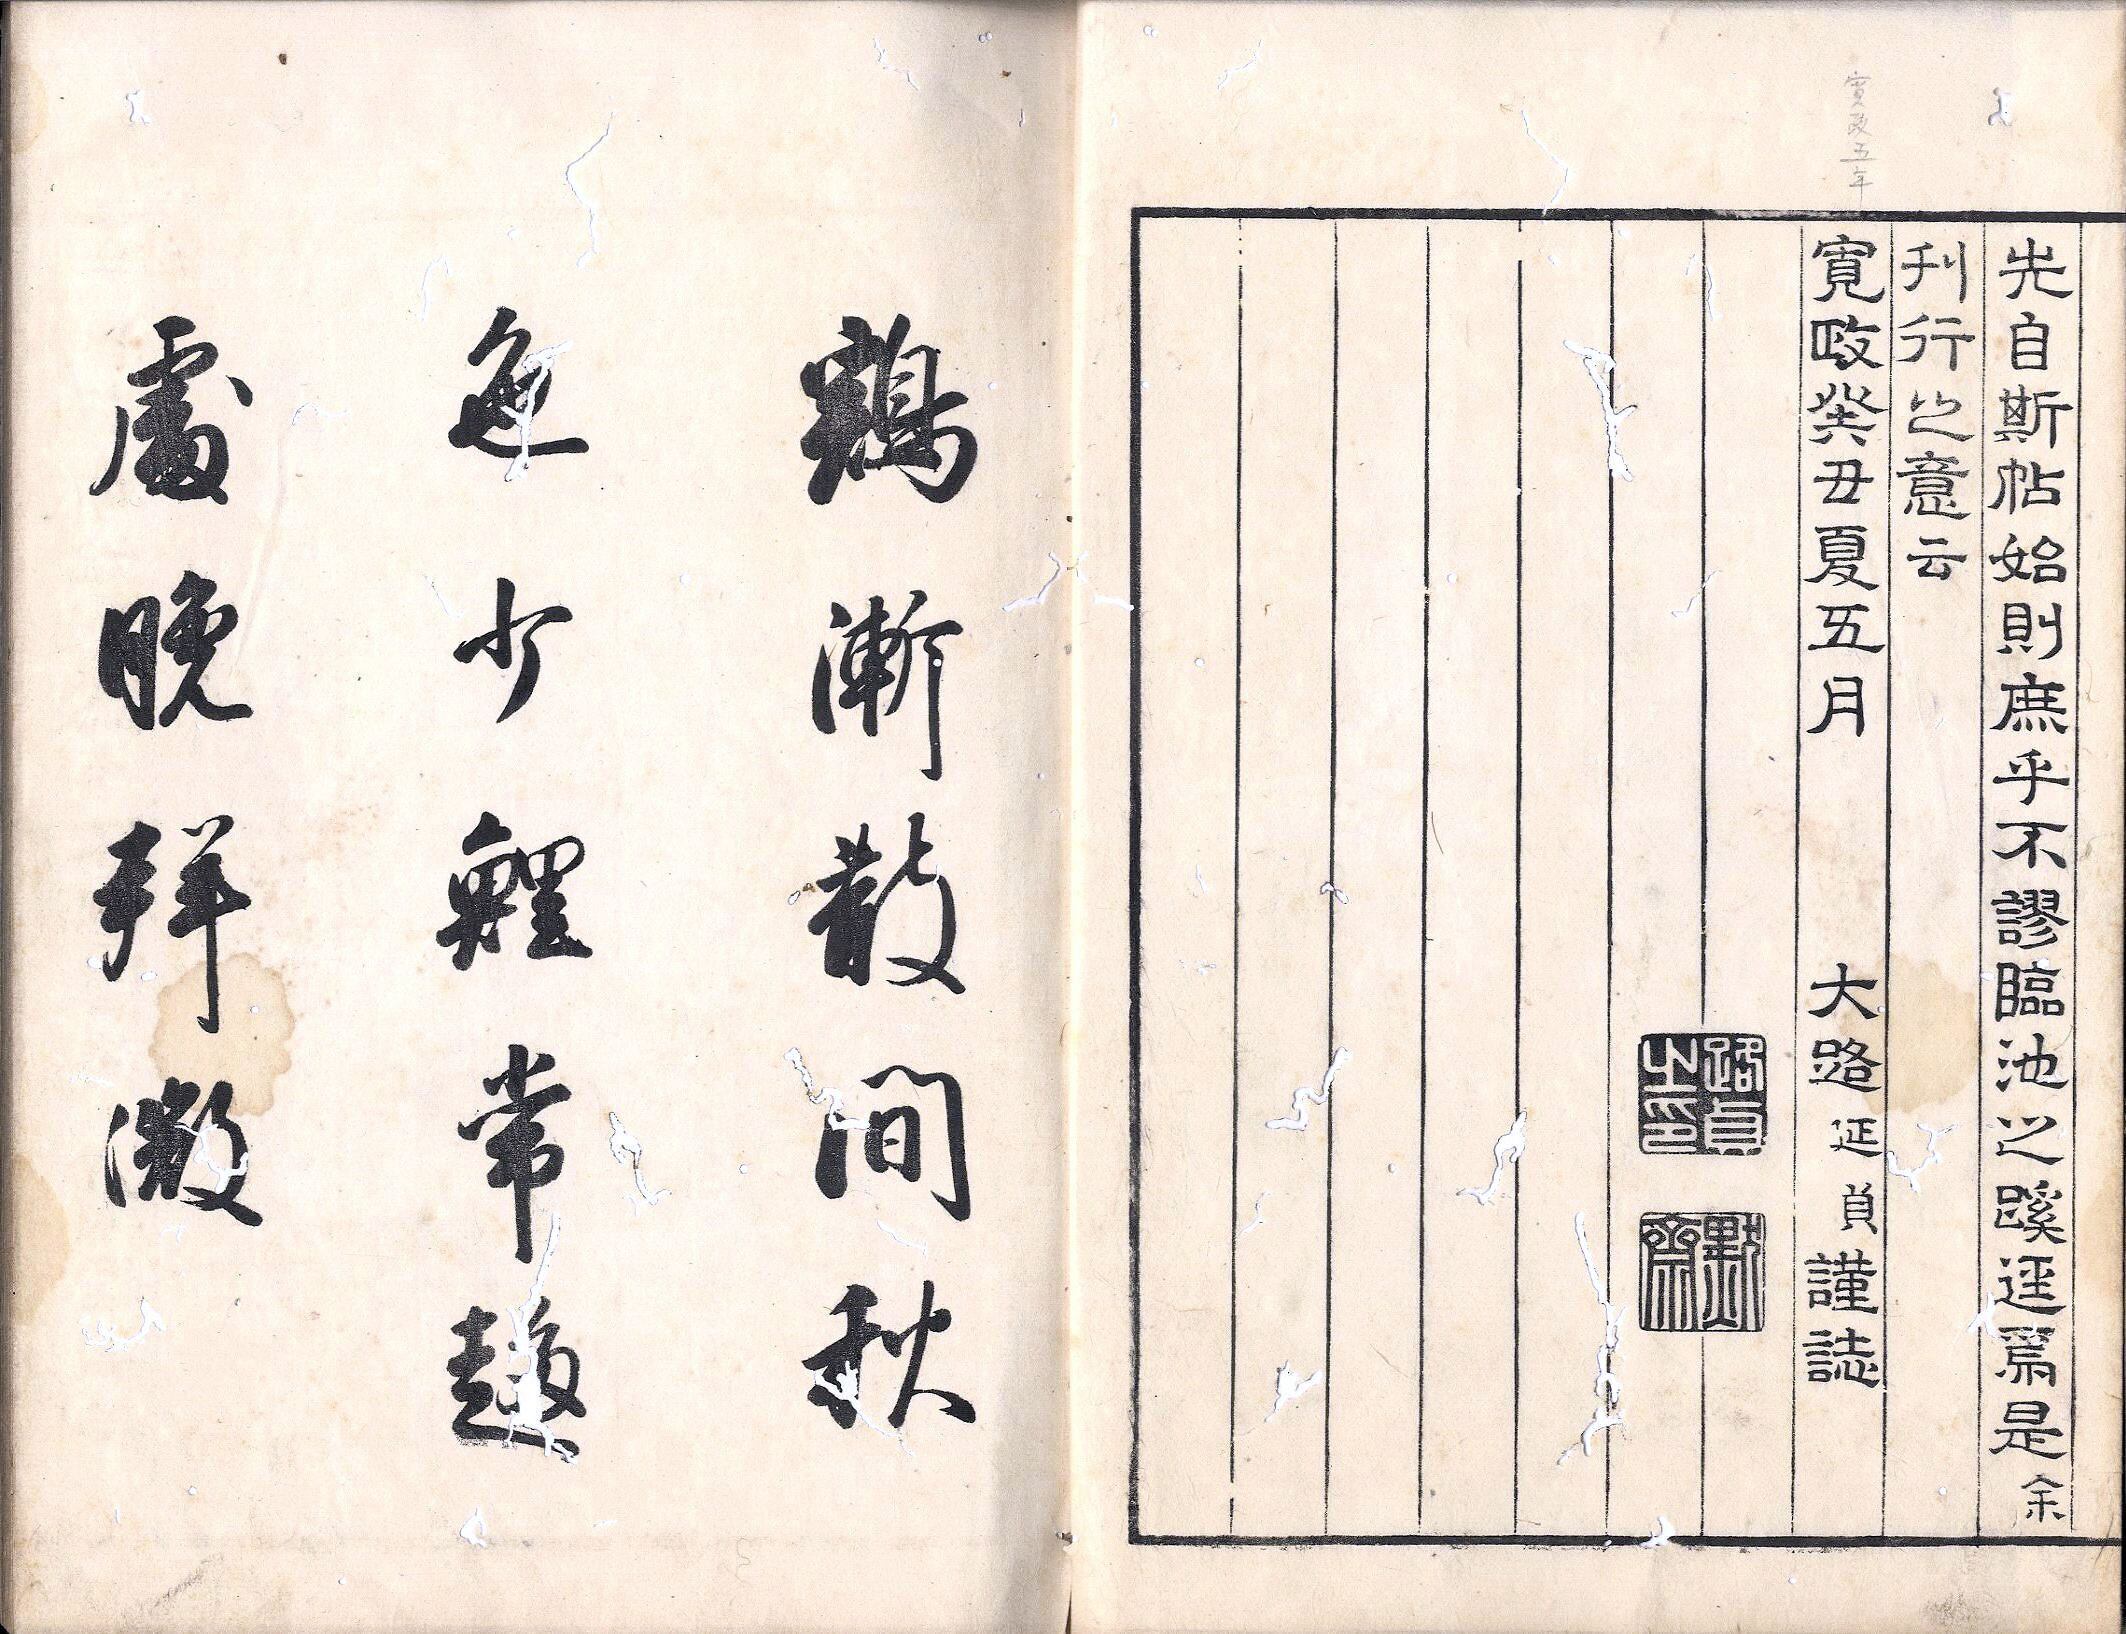 寛政五年
先自斯帖始則庶乎不謬臨池之蹊逕焉是余
刊行之意云
寛政癸丑夏五月　大路延貞謹誌
路貞之印
默齋
鷄漸散間秋
色少鯉常趨
處晚拜